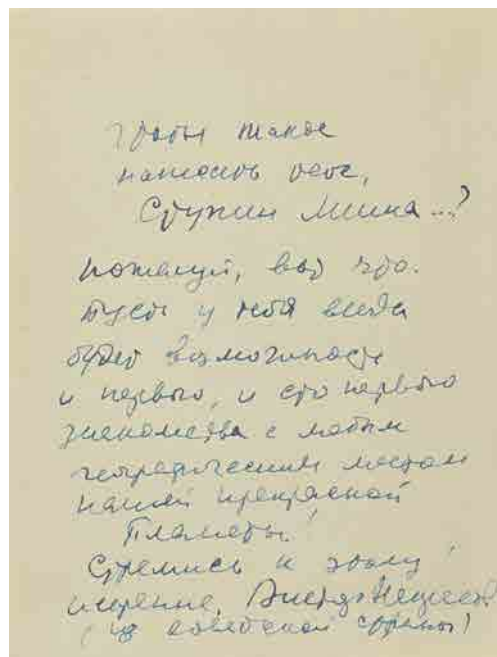 Чтобы такое
написать тебе,
Стужин Миша...?
пожалуй, вот что.
Пусть у тебя всегда
будет возможность
и первого, и сто первого
знакомства с любым
географическим местом
нашей прекрасной
Планеты!
Стремись к этому!
искренне,
(из советской страны)